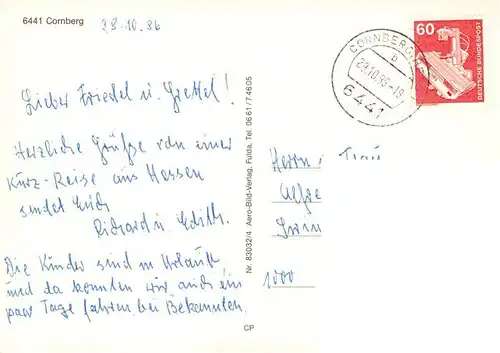 6441 Cornberg
28.10.86
Lieber Friedel u. Grettel!
Herzliche Grüße von einer
Kurz-Reise aus Hessen
sendet Euch
Richard u. Edith.
Die Kinder sind in Urlaub
und da konnten wir auch ein
paar Tage fahren bei Bekannten.
Nr. 83032/4 Aero-Bild-Verlag, Fulda, Tel. 06 61 / 7 46 05
CP
CORNBERG
b
29.10.86-18
6441
60
DEUTSCHE BUNDESPOST
Herrn
1000